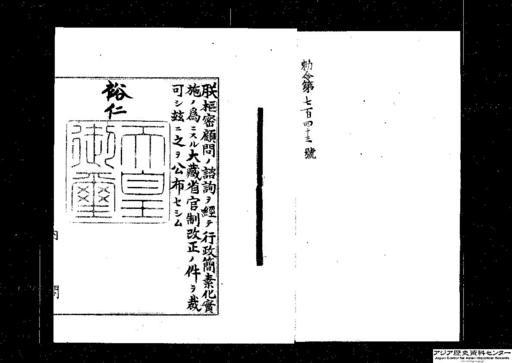 勅令第七百四十三號
朕樞密顧問ノ諮詢ヲ經テ行政簡素化實
施ノ爲ニスル大藏省官制改正ノ件ヲ裁
可シ玆ニ之ヲ公布セシム
裕仁
天皇
御璽
内閣
アジア歴史資料センター
Japan Center for Asian Historical Records